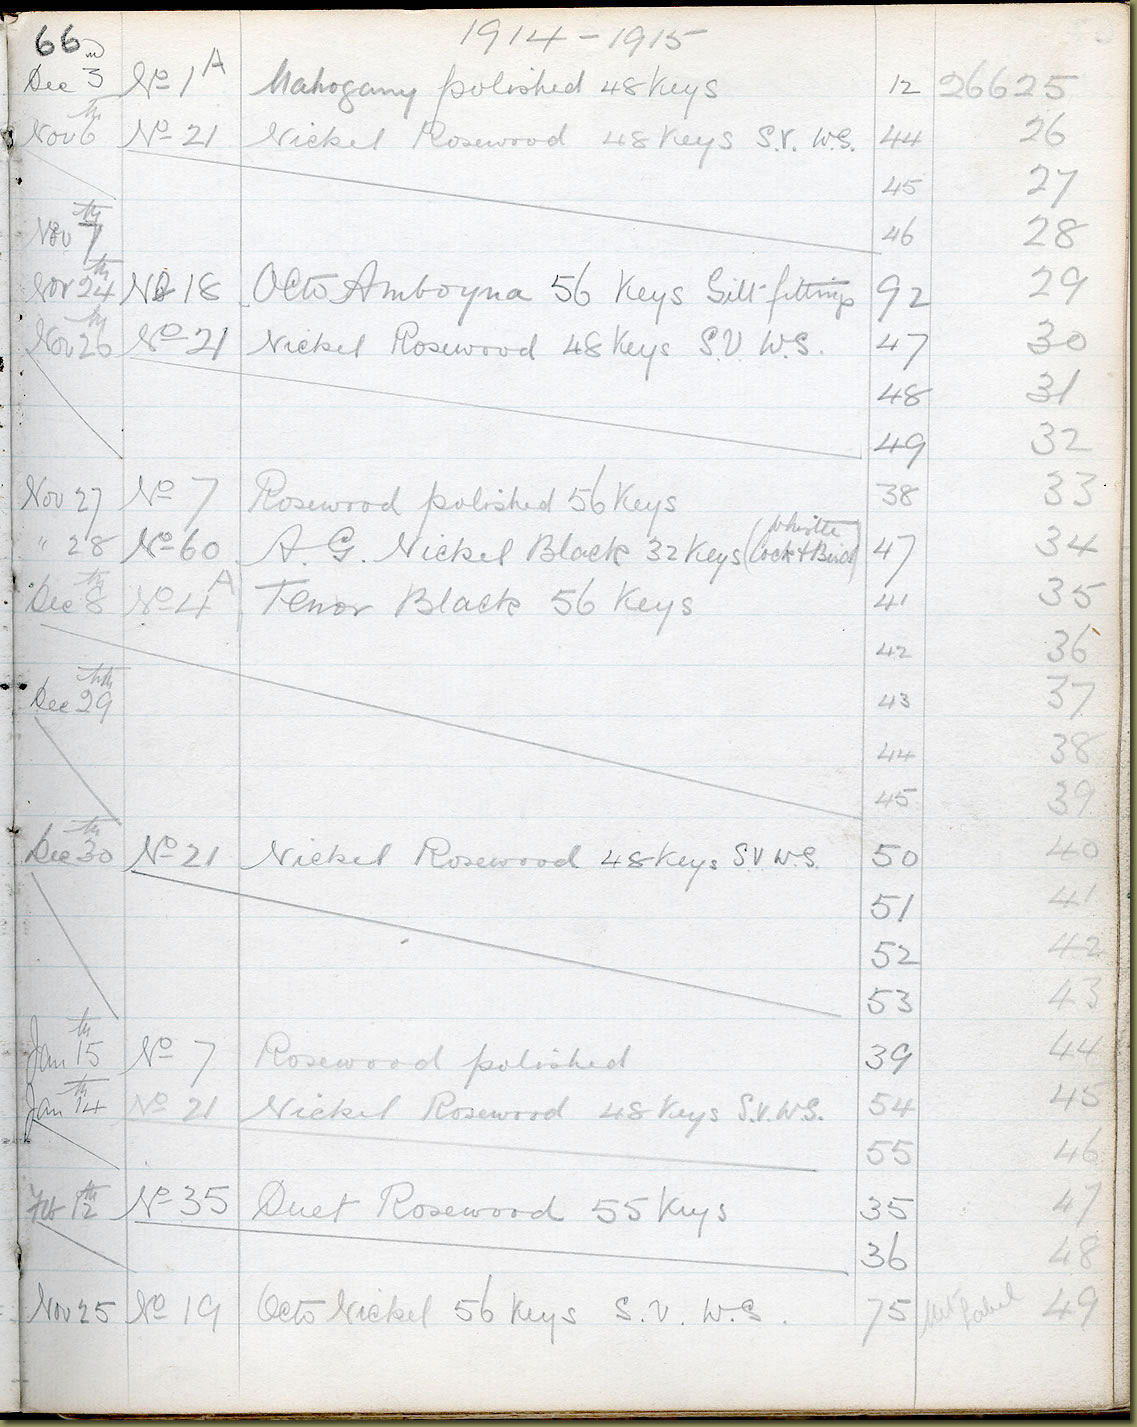 66 1914-1915
Dec 3 No 1A Mahogany polished 48 Keys 12 26625
Nov 6th No 21 Nickel Rosewood 48 Keys S.V. W.S. 44 26
45 27
Nov 7th 46 28
Nov 24th No 18 Octo Amboyna 56 Keys Gilt fittings 92 29
Nov 26th No 21 Nickel Rosewood 48 Keys S.V. W.S. 47 30
48 31
49 32
Nov 27 No 7 Rosewood polished 56 Keys 38 33
" 28 No 60 A. G. Nickel Black 32 Keys (Whistle Cock & Bird) 47 34
Dec 8th No 4A Tenor Black 56 Keys 41 35
42 36
Dec 29th 43 37
44 38
45 39
Dec 30th No 21 Nickel Rosewood 48 Keys S.V. W.S. 50 40
51 41
52 42
53 43
Jan 15th No 7 Rosewood polished 39 44
Jan 14th No 21 Nickel Rosewood 48 Keys S.V. W.S. 54 45
55 46
Feb 12th No 35 Duet Rosewood 55 Keys 35 47
36 48
Nov 25 No 19 Octo Nickel 56 Keys S.V. W.S. 75 label 49